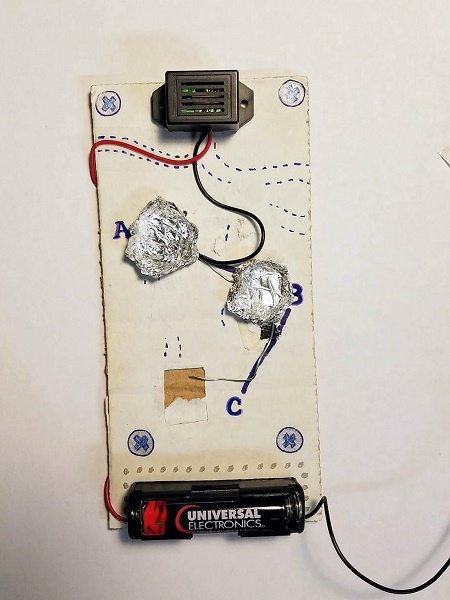 A
B
C
UNIVERSAL
ELECTRONICS